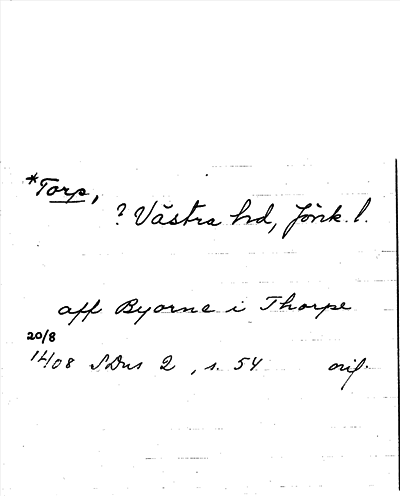 *Torp,
? Västra hd, Jönk. l.
aff Byorne i Thorpe
20/8
1408 SDns 2, s. 54 orig.